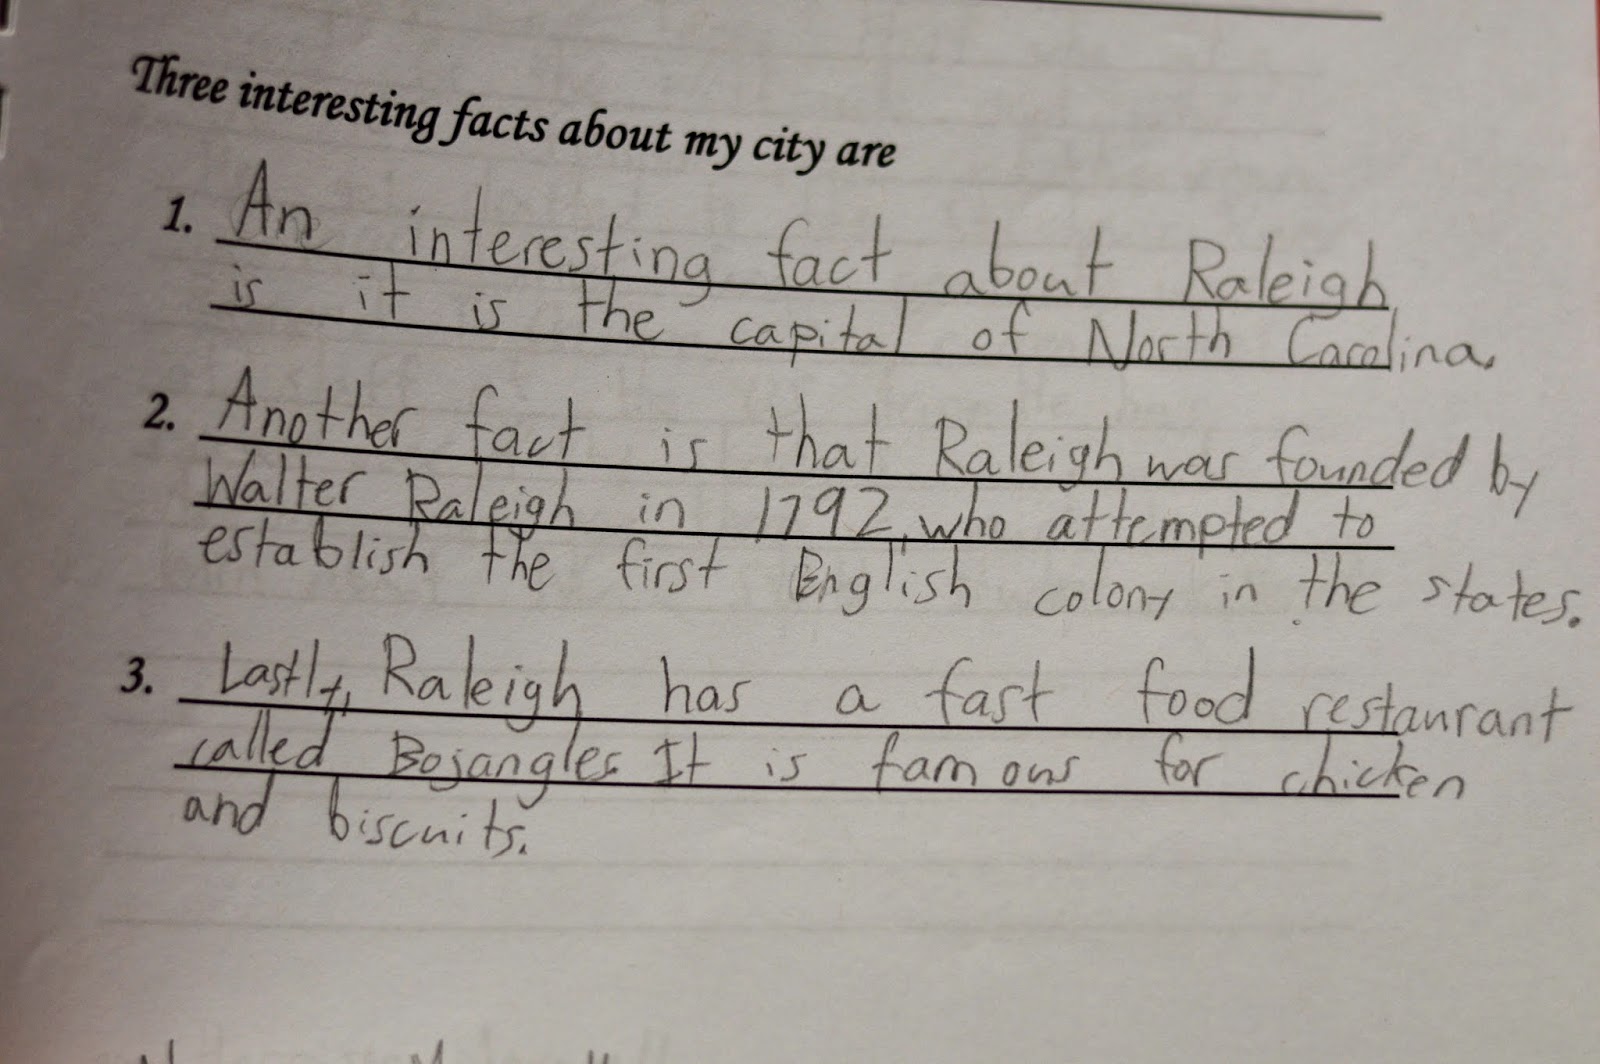 Three interesting facts about my city are
1. An interesting fact about Raleigh
is it is the capital of North Carolina.
2. Another fact is that Raleigh was founded by
Walter Raleigh in 1792, who attempted to
establish the first English colony in the states.
3. Lastly, Raleigh has a fast food restaurant
called Bojangles. It is famous for chicken
and biscuits.